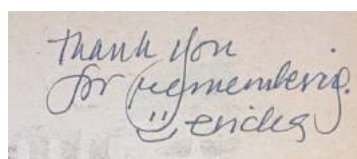 Thank you
for remembering.
ericka